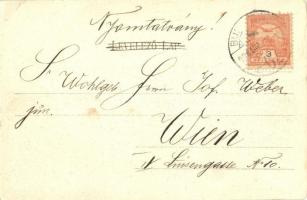 Nyomtatvány!
LEVELEZŐ-LAP
S. Wohlgeb Herrn Jos. Weber
jun.
Wien
IV Luisengasse No 10.